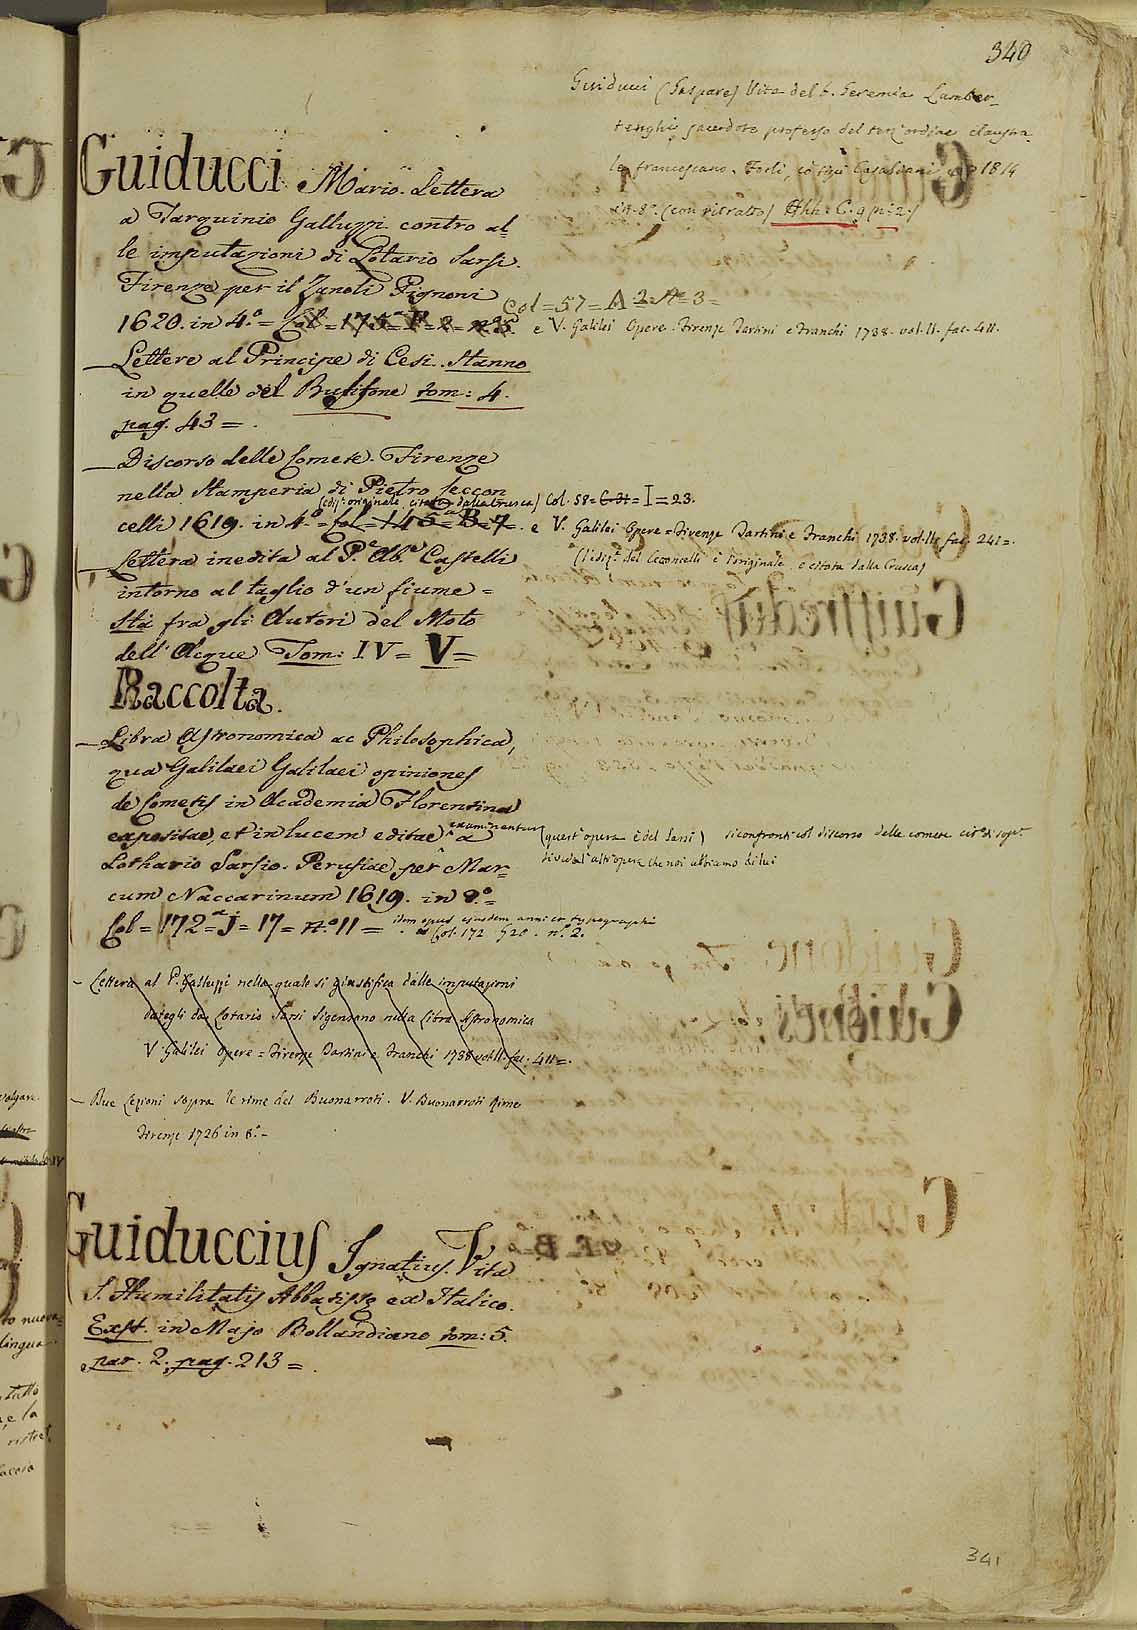 340
Guiducci (Gaspare) Vita del b. Geremia Lamber-
tenghi, sacerdote professo del terz'ordine claustra-
le francescano. Forlì, Casaliani, 1814
in-8º. (con ritratto) Hhh. C. 9 (nº 2.)
Guiducci Mario. Lettera
a Tarquinio Galluzzi contro al-
le imputazioni di Lotario Sarsi.
Firenze per il Zanoli Pignoni
1620. in 4.º = Col = 175 = F = 2 = nº 5 Col = 57 = A = 3 =
e V. Galilei Opere. Firenze Tartini e Franchi 1738. vol. II. fac. 411.
_ Lettere al Principe di Cesi. Stanno
in quelle del Bulifone tom: 4.
pag. 43 = .
_ Discorso delle Comete. Firenze
nella Stamperia di Pietro Ceccon
(ediz. originale, citata dalla Crusca) Col. 58 = = I = 23.
celli 1619. in 4º = Col = 146 = B = 7. e V. Galilei Opere = Firenze Tartini e Franchi 1738. vol. II. fac. 241 =.
(l'ediz. del Cecconcelli è l'originale, e citata dalla Crusca)
_ Lettera inedita al P. Ab.e Castelli
intorno al taglio d'un fiume =
Stà fra gli Autori del Moto
dell'Acque Tom: IV = V =
Raccolta.
_ Libra Astronomica ac Philosophica,
qua Galilaei Galilaei opiniones
de Cometis in Academia Florentina
expositae, et in lucem editae examinantur a (quest'opera è del Sarsi) si confronti col discorso delle comete
Lothario Sarsio. Perusiae per Mar- altr'opere che noi abbiamo di lui
cum Naccarinum 1619. in 8.º =
Col = 172 = j = 17 = nº 11 = idem opus ejusdem anni et typographi
Col. 172 G 20. nº 2.
- Lettera al P. Galluzzi nella quale si giustifica dalle imputazioni
dategli da Lotario Sarsi Sigensano nella Libra Astronomica
V. Galilei Opere = Firenze Tartini e Franchi 1738 vol. II. fac. 411 =.
- Due Lezioni sopra le rime del Buonarroti. V. Buonarroti Rime
Firenze 1726 in 8º. -
Guiduccius Ignatius. Vita
S. Humilitatis Abbatissę ex Italico.
Exst. in Majo Bollandiano tom: 5.
par. 2, pag. 213 = .
341